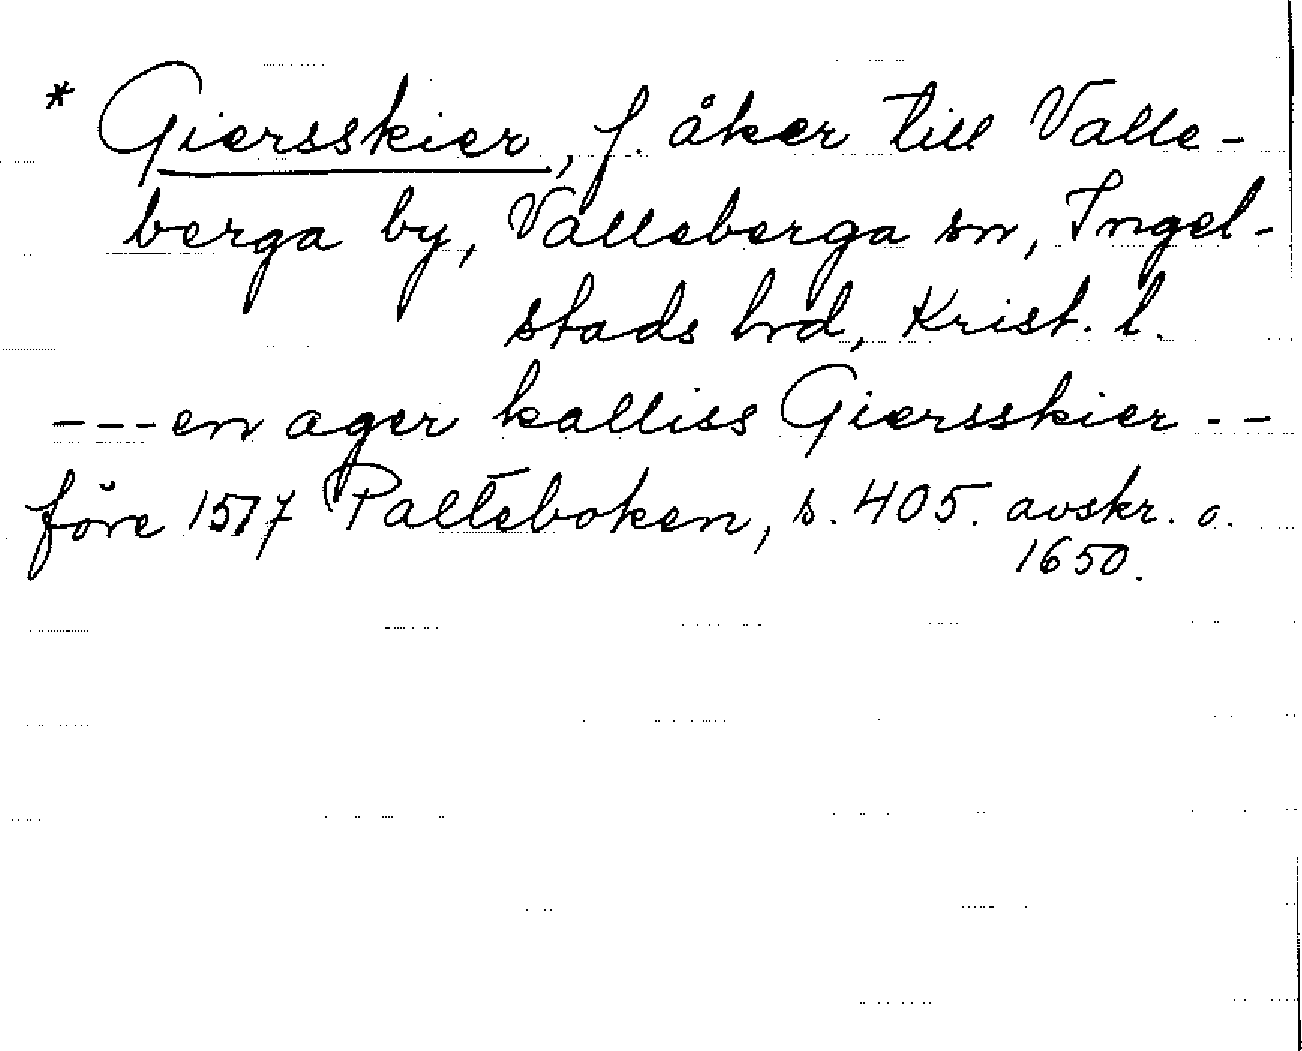 * Giersskier, f. åker till Valle-
berga by, Valleberga sn, Ingel-
stads hrd, Krist. l.
--- en ager kalliss Giersskier --
före 1517 Palteboken, s. 405. avskr. o.
1650.